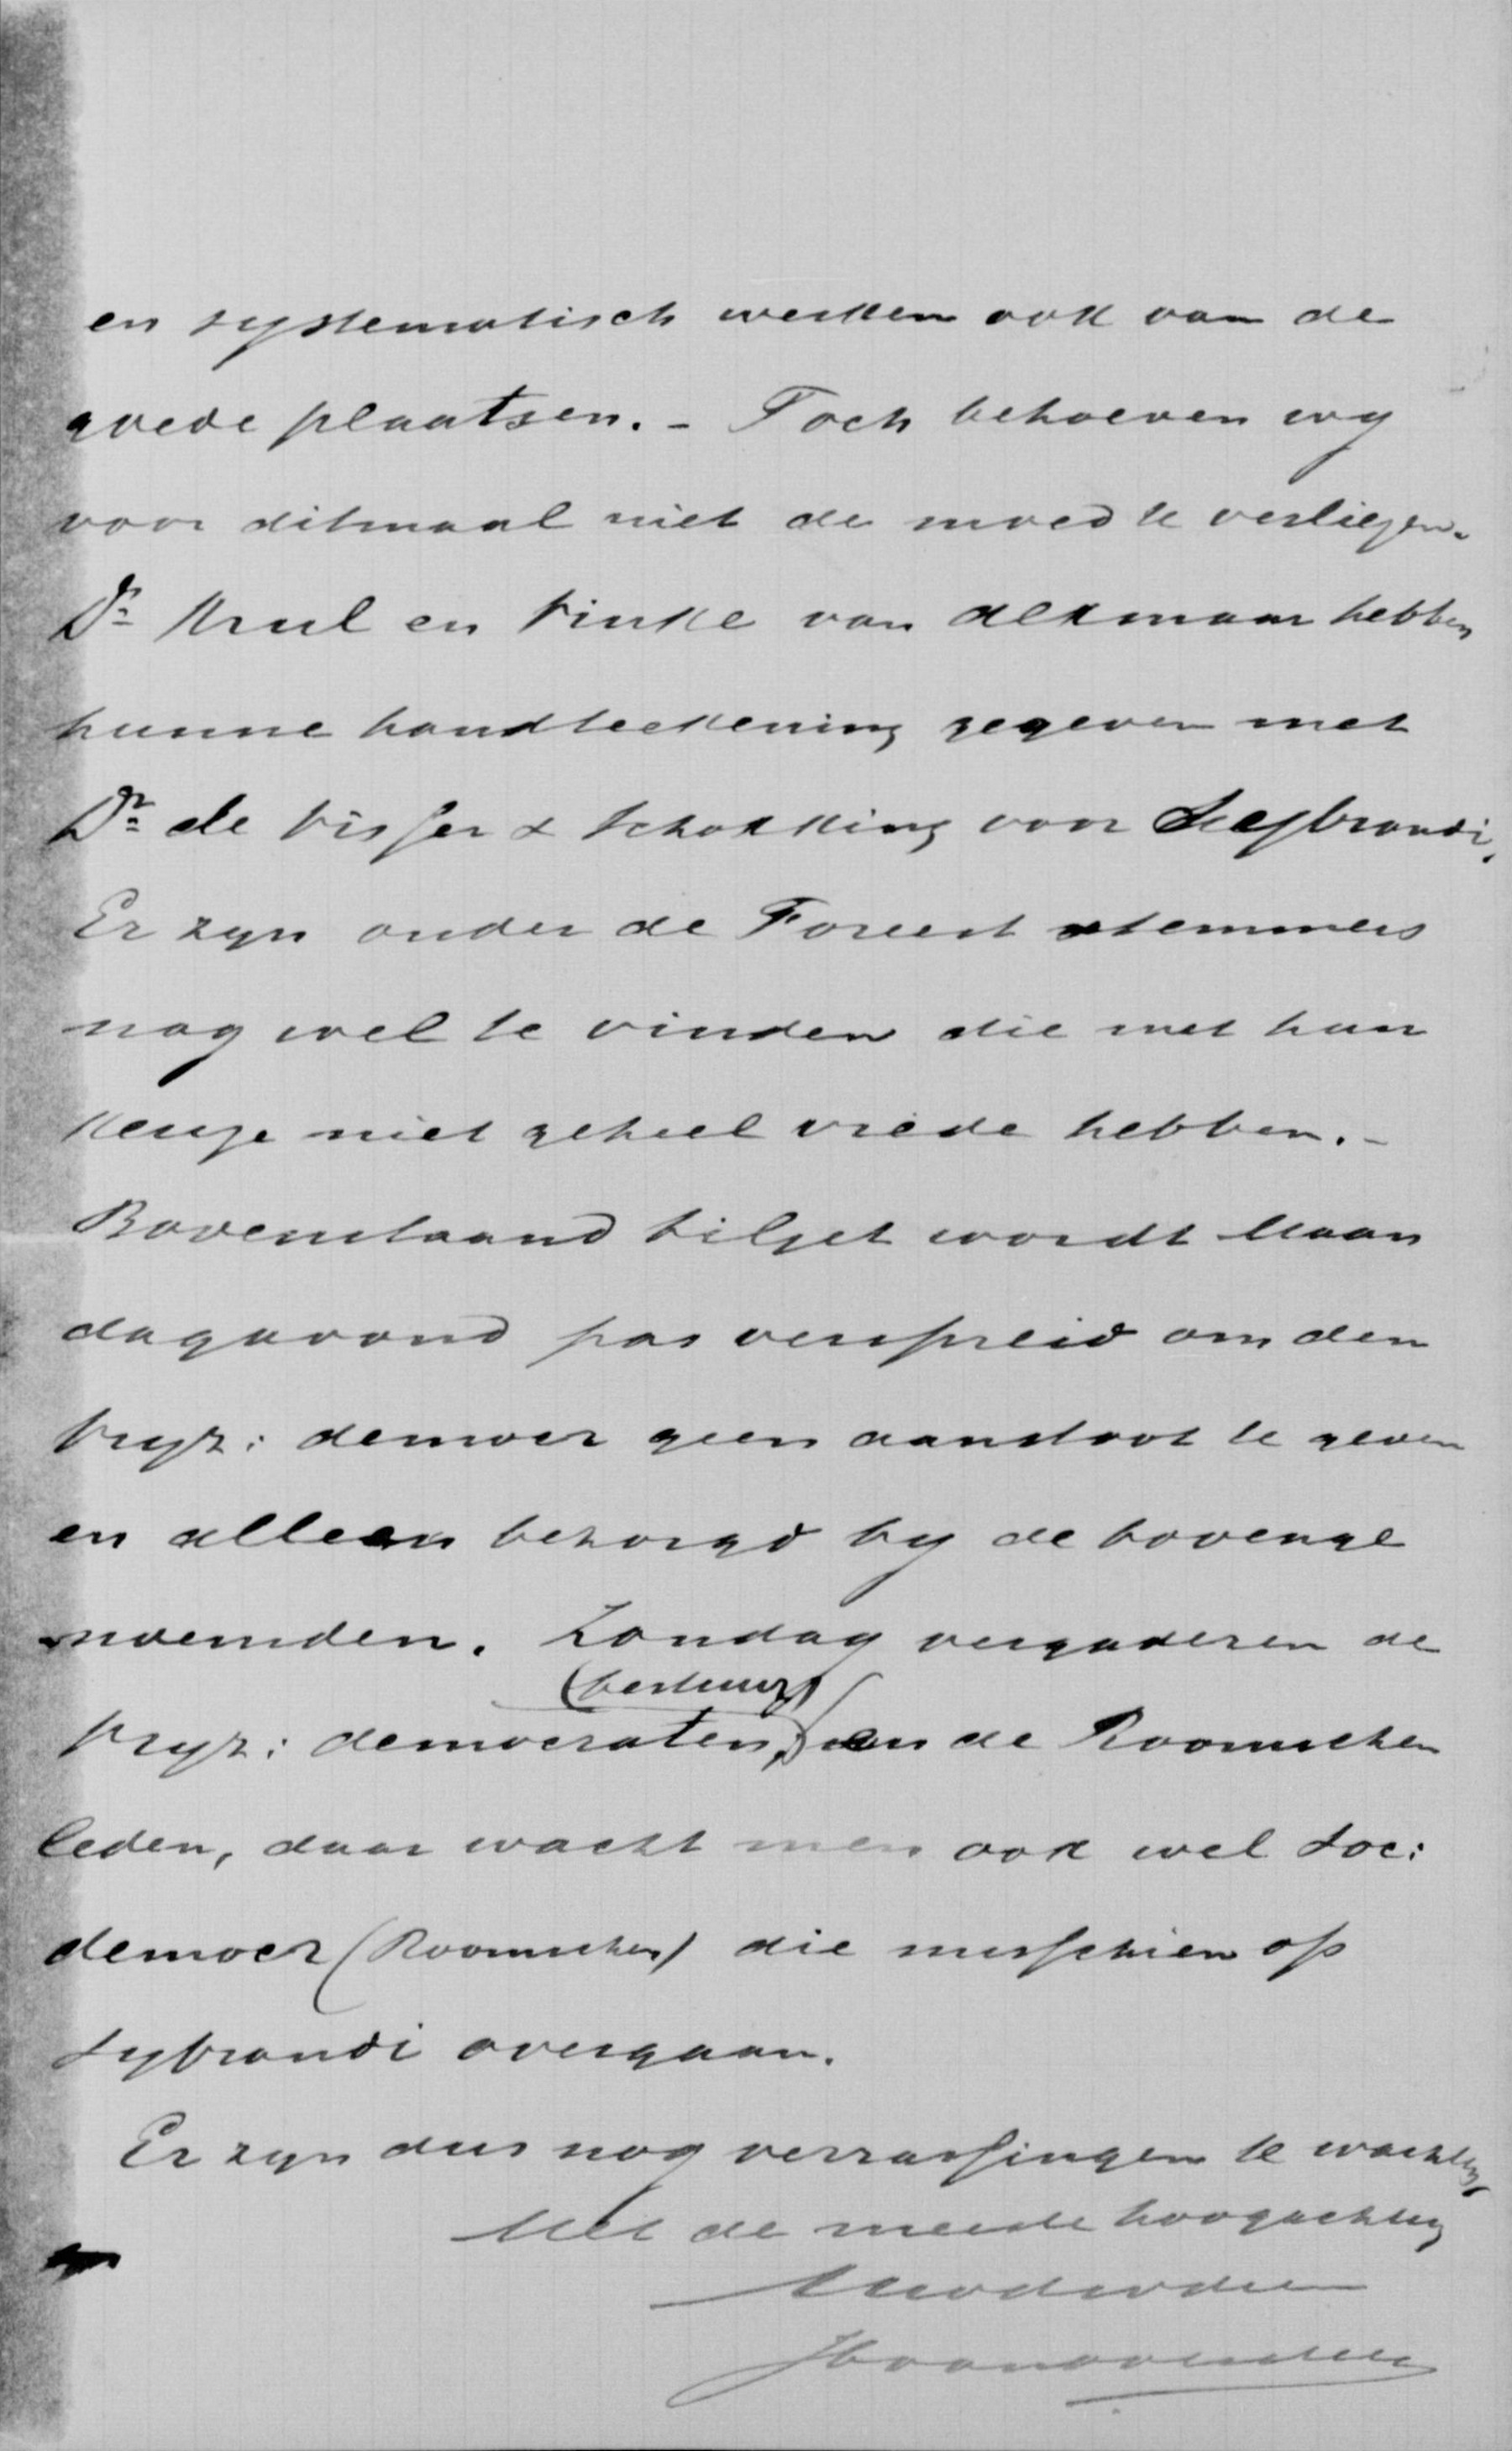 en systematisch werken ook van de
goede plaatsen. - Toch behoeven wy
voor ditmaal niet de moed te verliezen.
Dr Krul en Vinke van Alkmaar hebben
hunne handteekening gegeven met
Dr de Visser & Schokking voor Seybrandi,
Er zyn onder de Foreest stemmers
nog wel te vinden die met hun
keuze niet geheel vrede hebben. -
Bovenstaand biljet wordt Maan
dagavond pas verspreid om den
Vryz: democr geen aanstoot te geven
en alleen bezorgd by de bovenge
noemden. Zondag vergaderen de
(bestuur)
Vryz: democraten, en de Roomschen
leden, daar wacht men ook wel Soc:
democr (Roomschen) die misschien op
Sybrandi overgaan.
Er zyn dus nog verrassingen te wachten,
Met de meeste hoogachting